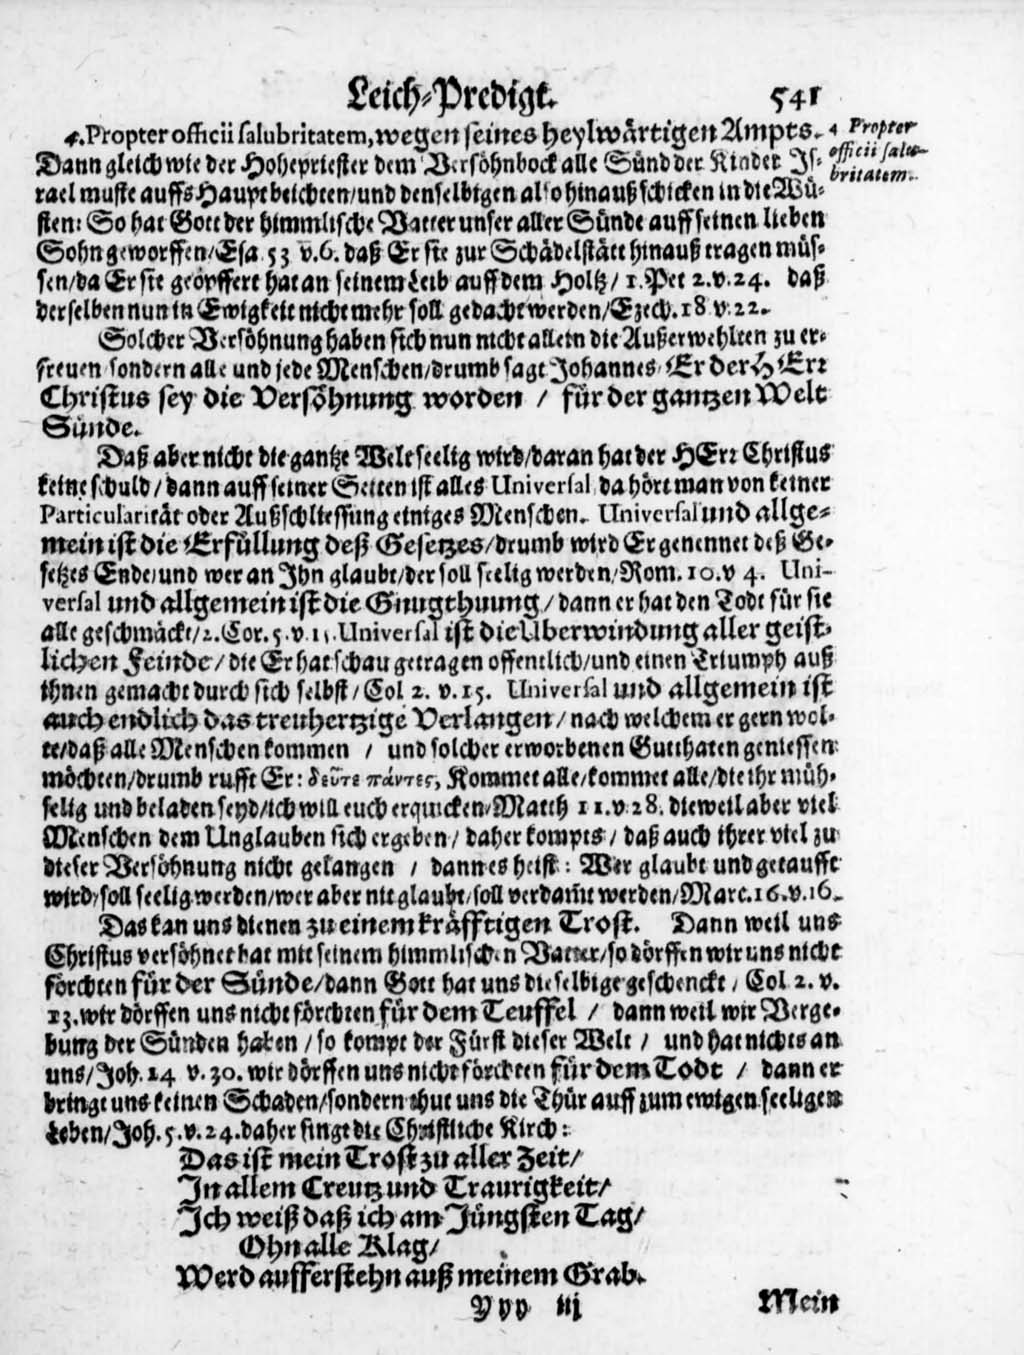 Leich-Predigt. 541
4. Propter officii salubritatem, wegen seines heylwärtigen Ampts.
4 Propter officii salu-
britatem.
Dann gleich wie der Hohepriester dem Versöhnbock alle Sünd der Kinder Js-
rael muste auffs Haupt beichten/ und denselbigen also hinauß schicken in die Wü-
sten: So hat Gott der himmlische Vatter unser aller Sünde auff seinen lieben
Sohn geworffen/ Esa. 53 v. 6. daß Er sie zur Schädelstätt hinauß tragen müs-
sen/ da Er sie geöpffert hat an seinem Leib auff dem Holtz/ 1. Pet 2. v. 24. daß
derselben nun in Ewigkeit nicht mehr soll gedacht werden/ Ezech. 18 v. 22.
Solcher Versöhnung haben sich nun nicht allein die Außerwehlten zu er-
freuen/ sondern alle und jede Menschen/ drumb sagt Johannes/ Er der HErr
Christus sey die Versöhnung worden / für der gantzen Welt
Sünde.
Daß aber nicht die gantze Welt seelig wird/ daran hat der HErr Christus
keine schuld/ dann auff seiner Seiten ist alles Universal, da hört man von keiner
Particularität oder Außschliessung einiges Menschen. Universal und allge-
mein ist die Erfüllung deß Gesetzes/ drumb wird Er genennet deß Ge-
setzes Ende/ und wer an Jhn glaubt/ der soll seelig werden/ Rom. 10. v 4. Uni-
versal und allgemein ist die Gnugthuung/ dann er hat den Todt für sie
alle geschmäckt/ 2. Cor. 5. v. 15. Universal ist die Uberwindung aller geist-
lichen Feinde/ die Er hat schau getragen offentlich/ und einen Triumph auß
ihnen gemacht durch sich selbst/ Col 2. v. 15. Universal und allgemein ist
auch endlich das treuhertzige Verlangen/ nach welchem er gern wol-
te/ daß alle Menschen kommen / und solcher erworbenen Gutthaten geniessen
möchten/ drumb rufft Er: δεῦτε πάντες, Kommet alle/ kommet alle/ die ihr müh-
selig und beladen seyd/ ich will euch erquicken/ Matth 11. v. 28. dieweil aber viel
Menschen dem Unglauben sich ergeben/ daher kompts/ daß auch ihrer viel zu
dieser Versöhnung nicht gelangen / dann es heist: Wer glaubt und getaufft
wird/ soll seelig werden/ wer aber nit glaubt/ soll verdam̃t werden/ Marc. 16. v. 16.
Das kan uns dienen zu einem kräfftigen Trost. Dann weil uns
Christus versöhnet hat mit seinem himmlischen Vatter/ so dörffen wir uns nicht
förchten für der Sünde/ dann Gott hat uns dieselbige geschenckt/ Col 2. v.
13. wir dörffen uns nicht förchten für dem Teuffel / dann weil wir Verge-
bung der Sünden haben / so kompt der Fürst dieser Welt / und hat nichts an
uns/ Joh. 14 v. 30. wir dörffen uns nicht förchten für dem Todt / dann er
bringt uns keinen Schaden/ sondern thut uns die Thür auff zum ewigen seeligen
Leben/ Joh. 5. v. 24. daher singt die Christliche Kirch:
Das ist mein Trost zu aller Zeit/
Jn allem Creutz und Traurigkeit/
Jch weiß daß ich am Jüngsten Tag/
Ohn alle Klag/
Werd aufferstehn auß meinem Grab.
Yyy iij Mein